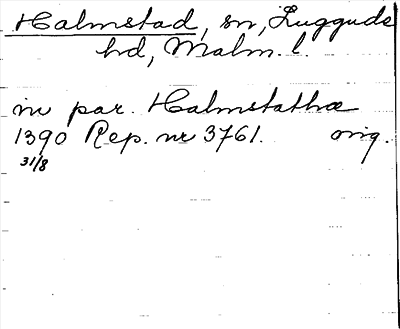 Halmstad, sn, Luggude
hd, Malm. l.
in par. Halmstathæ
1390 Rep. nr 3761. orig.
31/8